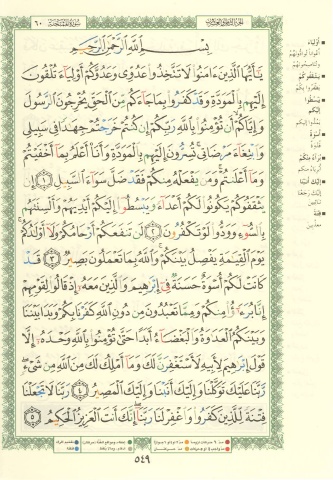 الجزء الثامن والعشرون
٦٠
سورة الممتحنة
بِسْمِ اللَّهِ الرَّحْمَٰنِ الرَّحِيمِ
يَٰٓأَيُّهَا الَّذِينَ ءَامَنُوا لَا تَتَّخِذُوا عَدُوِّى وَعَدُوَّكُمْ أَوْلِيَآءَ تُلْقُونَ
إِلَيْهِم بِالْمَوَدَّةِ وَقَدْ كَفَرُوا بِمَا جَآءَكُم مِّنَ الْحَقِّ يُخْرِجُونَ الرَّسُولَ
وَإِيَّاكُمْ أَن تُؤْمِنُوا بِاللَّهِ رَبِّكُمْ إِن كُنتُمْ خَرَجْتُمْ جِهَٰدًا فِى سَبِيلِى
وَابْتِغَآءَ مَرْضَاتِى تُسِرُّونَ إِلَيْهِم بِالْمَوَدَّةِ وَأَنَا۠ أَعْلَمُ بِمَآ أَخْفَيْتُمْ
وَمَآ أَعْلَنتُمْ وَمَن يَفْعَلْهُ مِنكُمْ فَقَدْ ضَلَّ سَوَآءَ السَّبِيلِ ١ إِن
يَثْقَفُوكُمْ يَكُونُوا لَكُمْ أَعْدَآءً وَيَبْسُطُوٓا إِلَيْكُمْ أَيْدِيَهُمْ وَأَلْسِنَتَهُم
بِالسُّوٓءِ وَوَدُّوا لَوْ تَكْفُرُونَ ٢ لَن تَنفَعَكُمْ أَرْحَامُكُمْ وَلَآ أَوْلَٰدُكُمْ
يَوْمَ الْقِيَٰمَةِ يَفْصِلُ بَيْنَكُمْ وَاللَّهُ بِمَا تَعْمَلُونَ بَصِيرٌ ٣ قَدْ
كَانَتْ لَكُمْ أُسْوَةٌ حَسَنَةٌ فِىٓ إِبْرَٰهِيمَ وَالَّذِينَ مَعَهُۥٓ إِذْ قَالُوا لِقَوْمِهِمْ
إِنَّا بُرَءَٰٓؤُا مِنكُمْ وَمِمَّا تَعْبُدُونَ مِن دُونِ اللَّهِ كَفَرْنَا بِكُمْ وَبَدَا بَيْنَنَا
وَبَيْنَكُمُ الْعَدَٰوَةُ وَالْبَغْضَآءُ أَبَدًا حَتَّىٰ تُؤْمِنُوا بِاللَّهِ وَحْدَهُۥٓ إِلَّا
قَوْلَ إِبْرَٰهِيمَ لِأَبِيهِ لَأَسْتَغْفِرَنَّ لَكَ وَمَآ أَمْلِكُ لَكَ مِنَ اللَّهِ مِن شَىْءٍ
رَّبَّنَا عَلَيْكَ تَوَكَّلْنَا وَإِلَيْكَ أَنَبْنَا وَإِلَيْكَ الْمَصِيرُ ٤ رَبَّنَا لَا تَجْعَلْنَا
فِتْنَةً لِّلَّذِينَ كَفَرُوا وَاغْفِرْ لَنَا رَبَّنَآ إِنَّكَ أَنتَ الْعَزِيزُ الْحَكِيمُ ٥
أولياء
يثقفوكم
يبسطوا
إليكم
أسوة
برآء منكم
إليك أنبنا
فتنة
٥٤٩